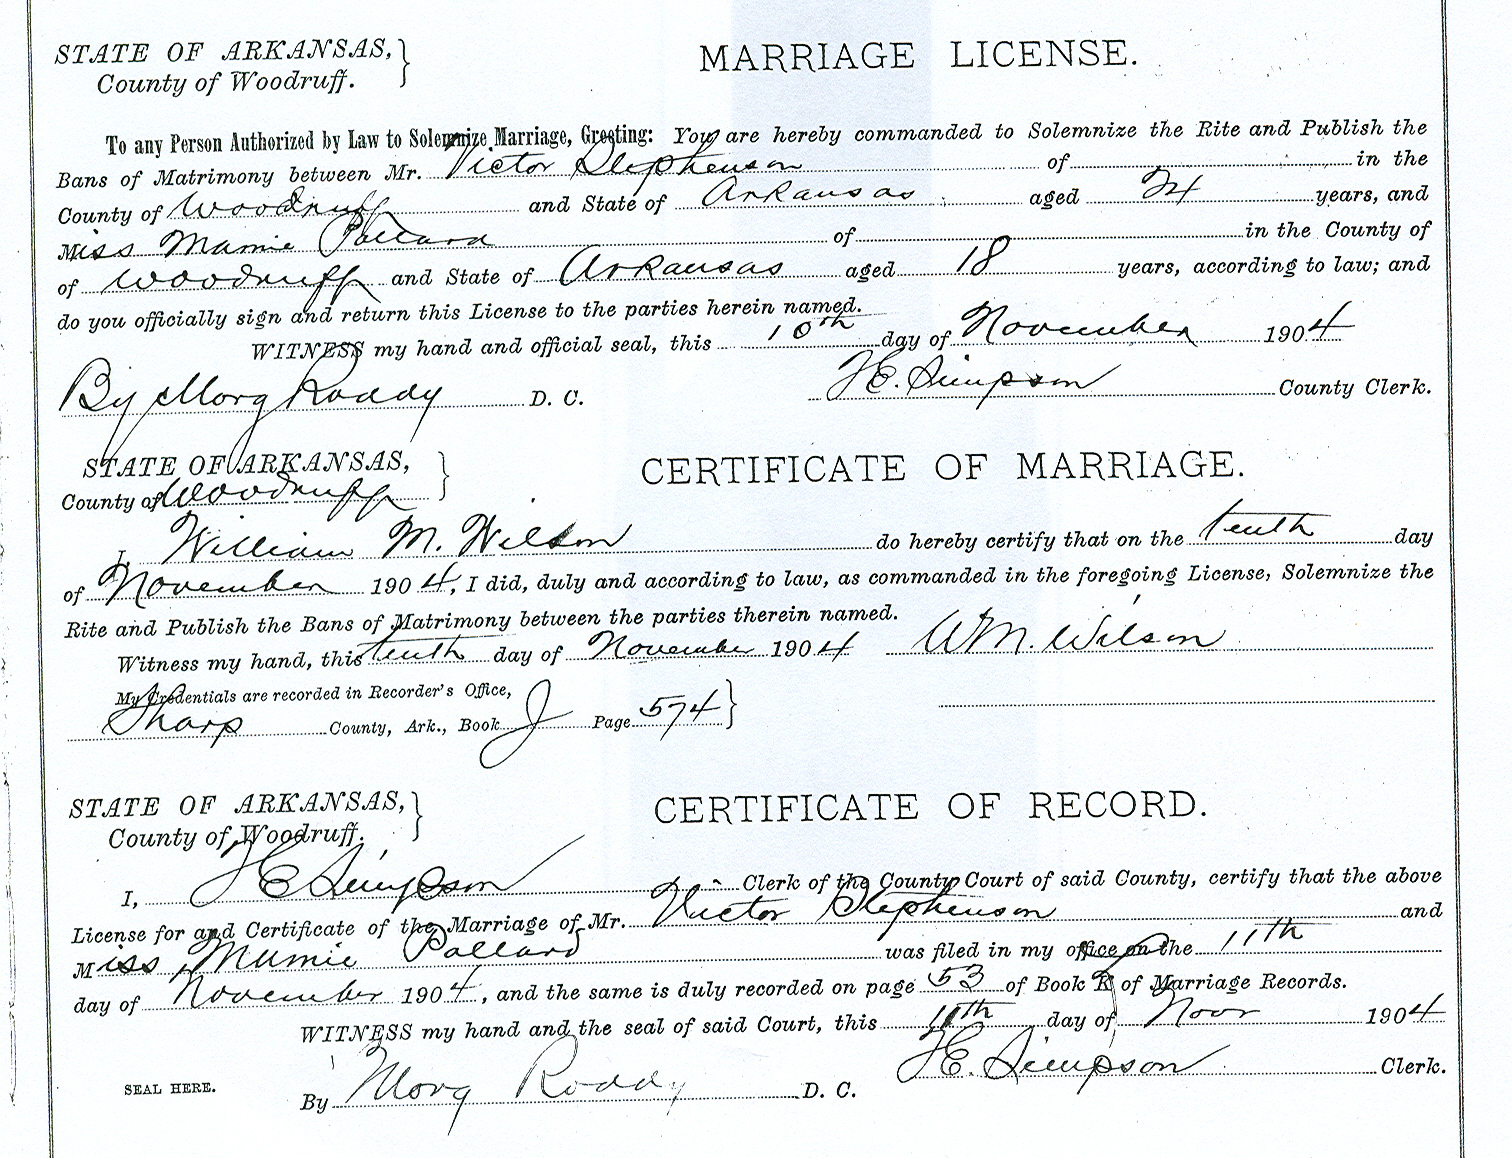 STATE OF ARKANSAS,
County of Woodruff.
MARRIAGE LICENSE.
To any Person Authorized by Law to Solemnize Marriage, Greeting: You are hereby commanded to Solemnize the Rite and Publish the
Bans of Matrimony between Mr. Victor Stephenson of in the
County of Woodruff and State of Arkansas aged 24 years, and
Miss Mamie Pollard of in the County of
of Woodruff and State of Arkansas aged 18 years, according to law; and
do you officially sign and return this License to the parties herein named.
WITNESS my hand and official seal, this 10th day of November 1904
By Morg Roddy D. C. H.E. Simpson County Clerk.
STATE OF ARKANSAS,
County of Woodruff
CERTIFICATE OF MARRIAGE.
I William M. Wilson do hereby certify that on the tenth day
of November 1904, I did, duly and according to law, as commanded in the foregoing License, Solemnize the
Rite and Publish the Bans of Matrimony between the parties therein named.
Witness my hand, this tenth day of November 1904 W.M. Wilson
My Credentials are recorded in Recorder's Office,
Sharp County, Ark., Book J Page 574
STATE OF ARKANSAS,
County of Woodruff.
CERTIFICATE OF RECORD.
I, H E Simpson Clerk of the County Court of said County, certify that the above
License for and Certificate of the Marriage of Mr. Victor Stephenson and
Miss Mamie Pollard was filed in my office on the 11th
day of November 1904, and the same is duly recorded on page 53 of Book of Marriage Records.
WITNESS my hand and the seal of said Court, this 11th day of Novr 1904
H.E. Simpson Clerk.
SEAL HERE.
By Morg Roddy D. C.